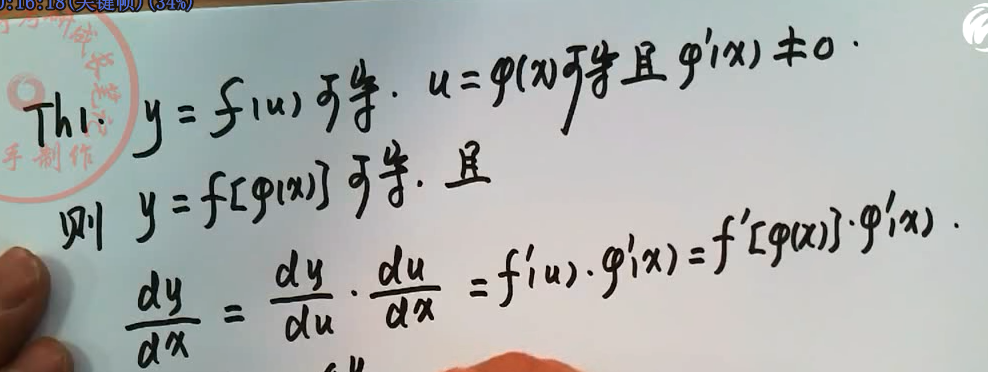 :16:18(关键帧)(34%)
Th1. y = f(u) 可导. u = φ(x)可导且 φ'(x) ≠ 0.
手制作
则 y = f[φ(x)] 可导. 且
dy/dx = dy/du · du/dx = f'(u) · φ'(x) = f'[φ(x)] · φ'(x).